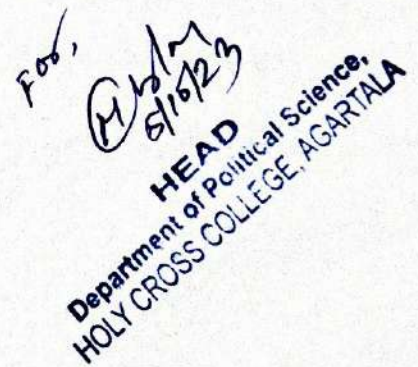 For,
6/10/23
HEAD
Department of Political Science,
HOLY CROSS COLLEGE, AGARTALA